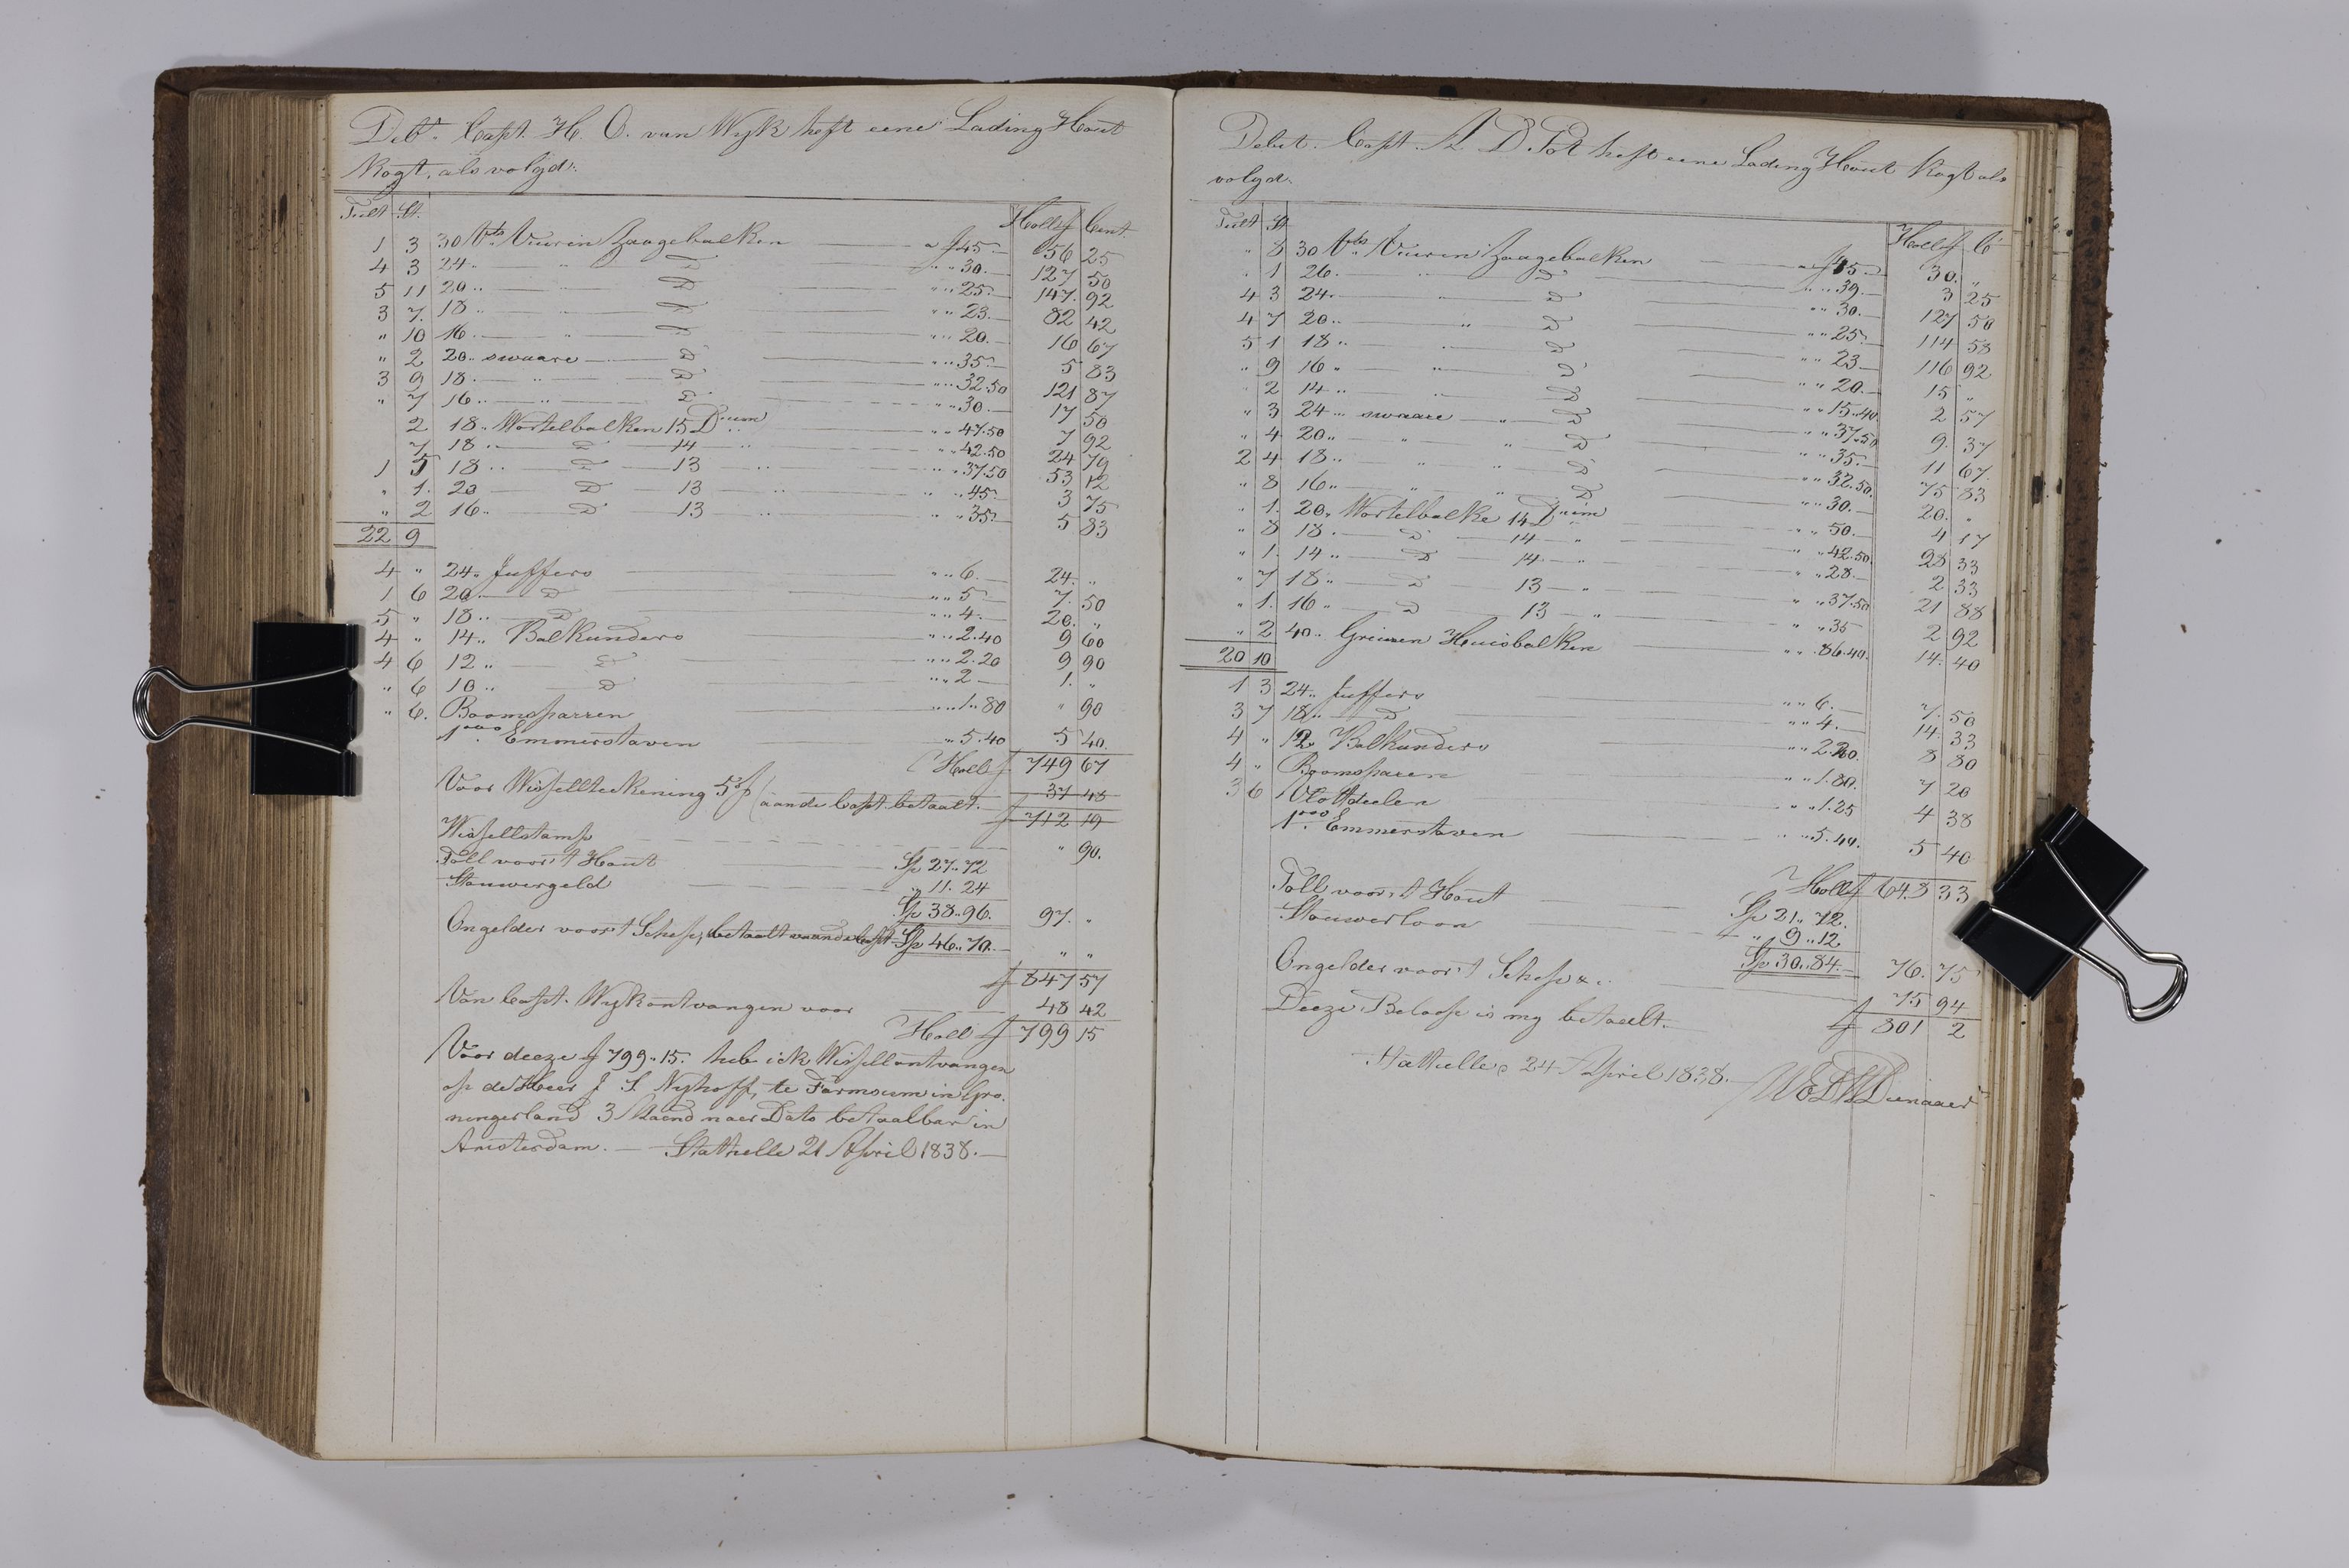 Debt. Capt. H. O. van Wyk heft eene Lading Hout
Kogt, als volgd:
Tult St. Hollf Cent.
1 3 30 Vts Vuuren Zaagebalken a f 45.— 56 25
4 3 24 .. " D " " 30.— 127 50
5 11 20 .. " D " " 25.— 147. 92
3 7. 18 .. " D " " 23.— 82 42
" 10 16 .. " D " " 20.— 16 67
" 2 20 .. swaare D " " 35.— 5 83
3 9 18 .. " D " " 32.50 121 87
" 7 16 .. " D " " 30.— 17 50
2 18 .. Wortelbalken 15 Duim " " 47.50 7 92
7 18 .. D 14 .. " " 42.50 24 79
1 5 18 .. D 13 .. " " 37.50 53 12
" 1. 20 D 13 .. " " 45. 3 75
" 2 16 .. D 13 .. " " 35.— 5 83
22 9
4 " 24 .. Juffers " " 6.— 24. "
1 6 20 .. D " " 5.— 7. 50
5 " 18 .. D " " 4.— 20. "
4 " 14 .. Balkunders " " 2.40 9 60
4 6 12 .. D " " 2.20 9 90
" 6 10 .. D " " 2— 1. "
" 6. Boomsparren " " 1.80 " 90
1000 Emmerstaven " 5.40 5 40.
Holl f 749 67
Voor Wissellteekening 5 % (aan de Capt. betaalt. 37 48
f 712 19
Wissellstamp " 90.
Toll voor 't Hout Sp 27.. 72
Stouwergeld " 11. 24
Sp 38.. 96. 97. "
Ongelder voor 't Schep, betaalt vaan de Capt Sp 46.. 70.— " "
f 847 57
Van Capt. Wyk ontvangen voor 48 42
Holl f 799 15
Voor deeze f 799.. 15. heb ick Wissell ontvangen
op de Heer J S. Nyhoff, te Farmsum in Gro-
ningerland 3 Maend naer Dato betaalbar in
Amsterdam. — Stathelle 21 April 1838.—
Debet. Capt. A D. Pot heft eene Lading Hout Kogt als
volgd.
Tult St Hollf C
" 8 30 Vts Vuuren Zaagebalken a f 45.— 30. "
" 1 26 .. " D " " 39.— 3 25
4 3 24 .. " D " " 30.— 127 50
4 7 20 .. " D " " 25.— 114 58
5 1 18 .. " D " " 23— 116 92
" 9 16 " " D " " 20.— 15 "
" 2 14 .. " D " " 15.40. 2 57
" 3 24 .. swaare " D " " 37.50 9. 37
" 4 20 .. " " D " " 35.— 11 67.
2 4 18 .. " " D " " 32.50. 75 83
" 8 16 .. " " D " " 30.— 20. "
" 1. 20. Wortelbalke 14 Duim " " 50.— 4 17
" 8 18 .. D 14 " " " 42.50. 28 33
" 1. 14 .. D 14 " " " 28.— 2 33
" 7 18 .. D 13 " " " 37.50 21 88
" 1. 16 .. D 13 " " " 35 2 92
" 2 40 .. Greinen Huisbalken " " 86.40. 14. 40
20 10
1 3 24 .. Juffers " " 6.— 7. 50
3 7 18 .. D " " 4.— 14. 33
4 " 12 Balkunders " " 2.20. 8 80
4 " Boomsparen " " 1.80. 7 20
3 6 Vlottdeelen " " 1.25 4 38
1000 Emmerstaven " " 5.40. 5 40
Hollf 648 33
Toll voor 't Hout Sp 21.. 72.
Stouwerloon " 9.. 12
Sp 30.. 84.— 76. 75
Ongelder voor 't Schep &.. 75 94
f 801 2
Deeze Beloop is my betaelt.
Stathelle, 24 April 1838.
WEDWDienaaer